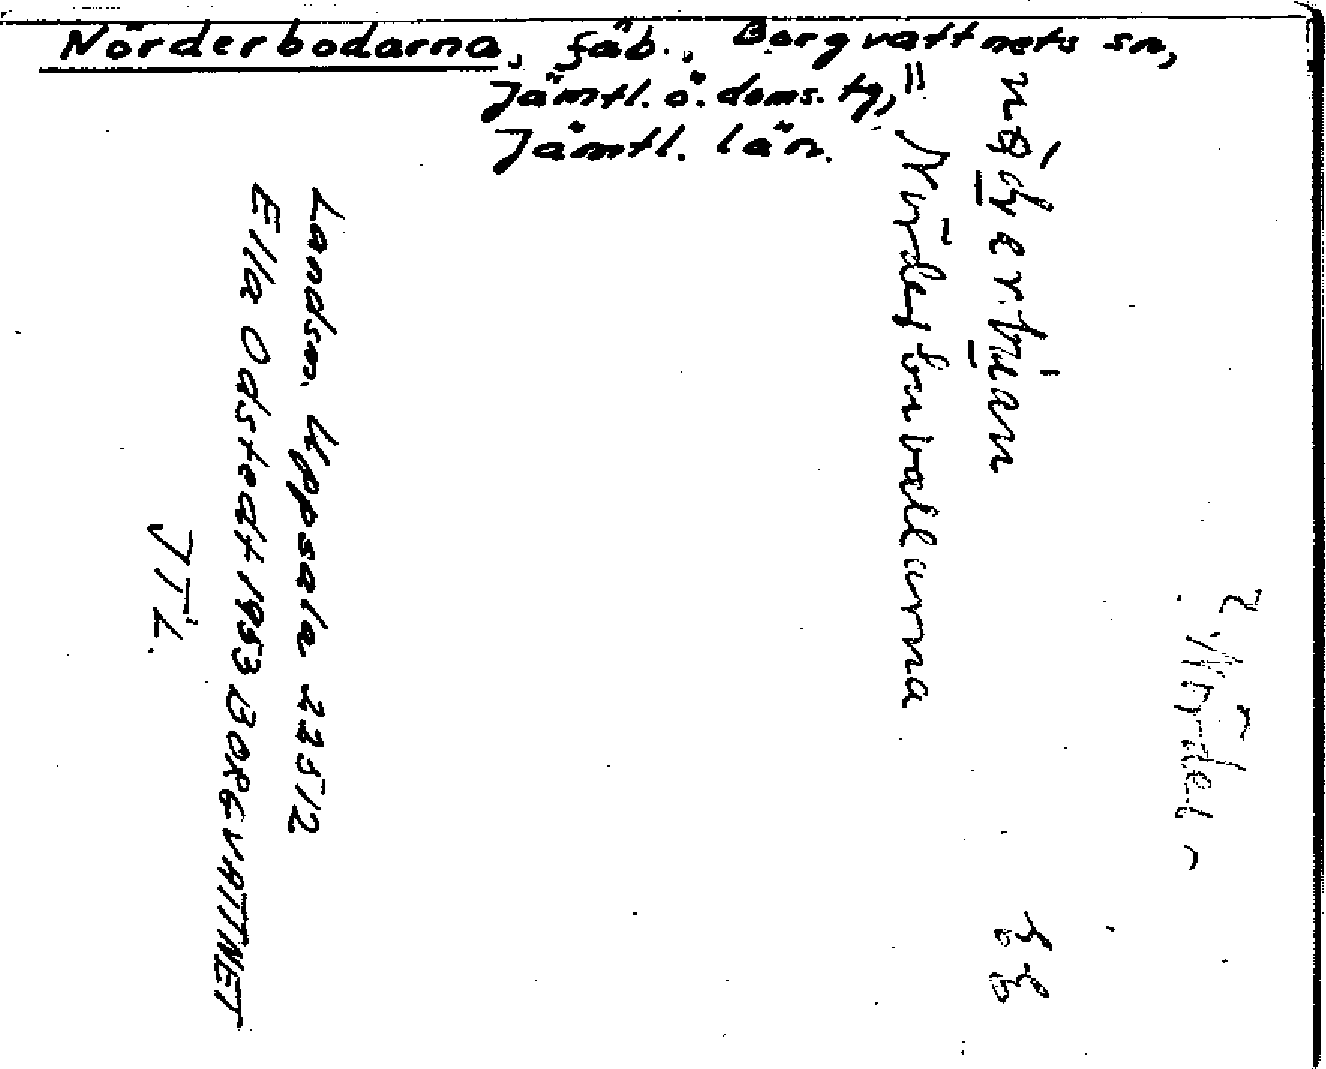 Nörderbodarna, fäb., Borgvattnets sn,
Jämtl. ö. doms. tg,
Jämtl. län.
= Nörderbuvallarna
Nörder-
Landsm. Uppsala 22512
Ella Odstedt 1953 BORGVATTNET
JTL.